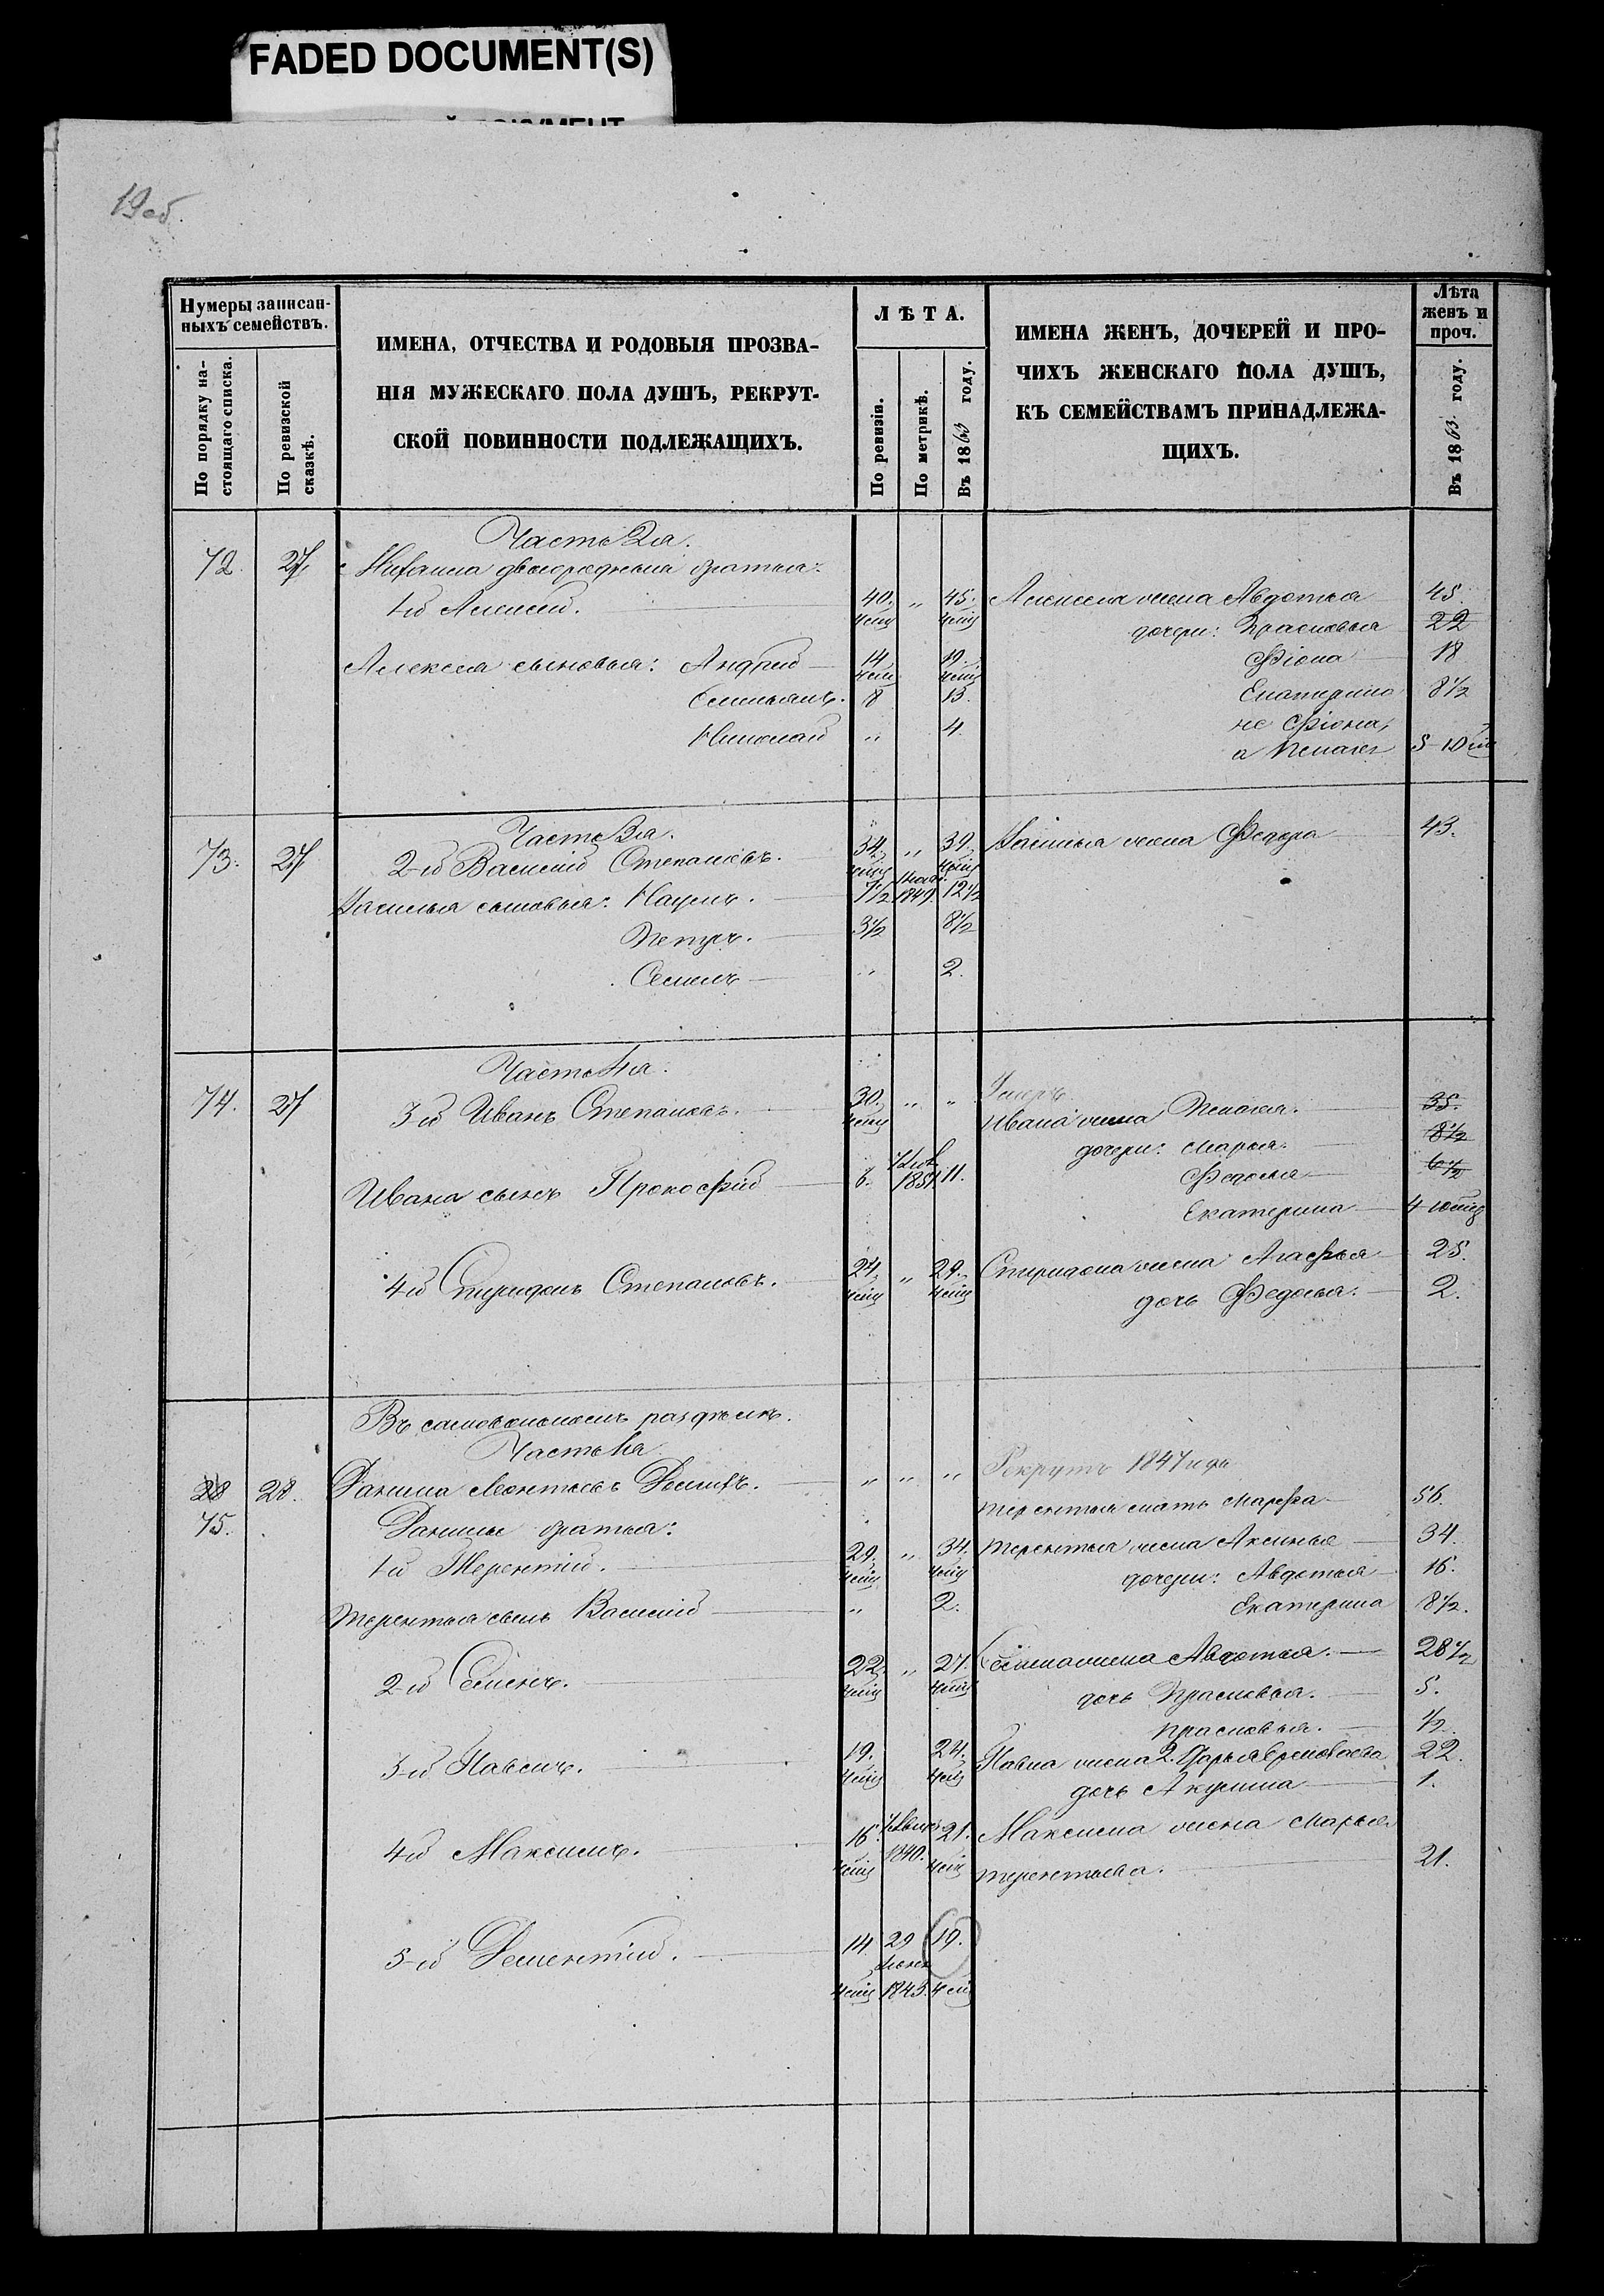 FADED DOCUMENT(S)
19об.
Нумеры записан-
ныхъ семействъ.
По порядку на-
стоящаго списка.
По ревизской
сказкѣ.
ИМЕНА, ОТЧЕСТВА И РОДОВЫЯ ПРОЗВА-
НІЯ МУЖЕСКАГО ПОЛА ДУШЪ, РЕКРУТ-
СКОЙ ПОВИННОСТИ ПОДЛЕЖАЩИХЪ.
ЛѢТА.
По ревизіи.
По метрикѣ.
Въ 1863 году.
ИМЕНА ЖЕНЪ, ДОЧЕРЕЙ И ПРО-
ЧИХЪ ЖЕНСКАГО ПОЛА ДУШЪ,
КЪ СЕМЕЙСТВАМЪ ПРИНАДЛЕЖА-
ЩИХЪ.
Лѣта
женъ и
проч.
Въ 1863 году.
Часть 2я.
72. 27 двоюродныя братья:
1й Алексей. 40. " 45. Алексея жена Авдотья 45.
дочери: Прасковья 22
Алексея сыновья: Андрей 14 19. Фіона 18
Емельянъ. 8 13. Екатерина 8½
Николай " 4 не Фіона,
а Пелагея
Часть 3я.
73. 27 2-й Василій Степановъ. 34. " 39. Василья жена Федора 43.
Василья сыновья: Наумъ. 7½ 1849 12½
Петръ. 3½ 8½
Семенъ " 2.
Часть 4я.
74. 27 3й Иванъ Степановъ. 30. " " Умеръ.
Ивана жена Пелагея. 35.
дочери: Марья. 8½
Ивана сынъ Прокофій 6. 1851 11. Федосья 6½
Екатерина
4й Спиридонъ Степановъ. 24. " 29. Спиридона жена Агафья 25.
дочь Федосья. 2.
Въ самовольномъ раздѣлѣ.
Часть 1я
28 28. Данила Леонтьевъ " " " Рекрутъ 1847 года
75. Терентья мать Марфа 56.
Данилы братья:
1й Терентій. 29. " 34. Терентья жена Аксинья 34.
дочери: Авдотья 16.
Терентья сынъ Василий " 2. Екатерина 8½.
2й Семенъ. 22. " 27. Семена жена Авдотья. 28½
дочь Прасковья. 5.
Прасковья. ½
3й Павелъ. 19. 24. Павла жена 2. Дарья 22.
дочь Акулина 1.
4й Максимъ. 16. 1840. 21. Максима жена Марья
Терентьева. 21.
5-й Дементій. 14 29 19.
1843.